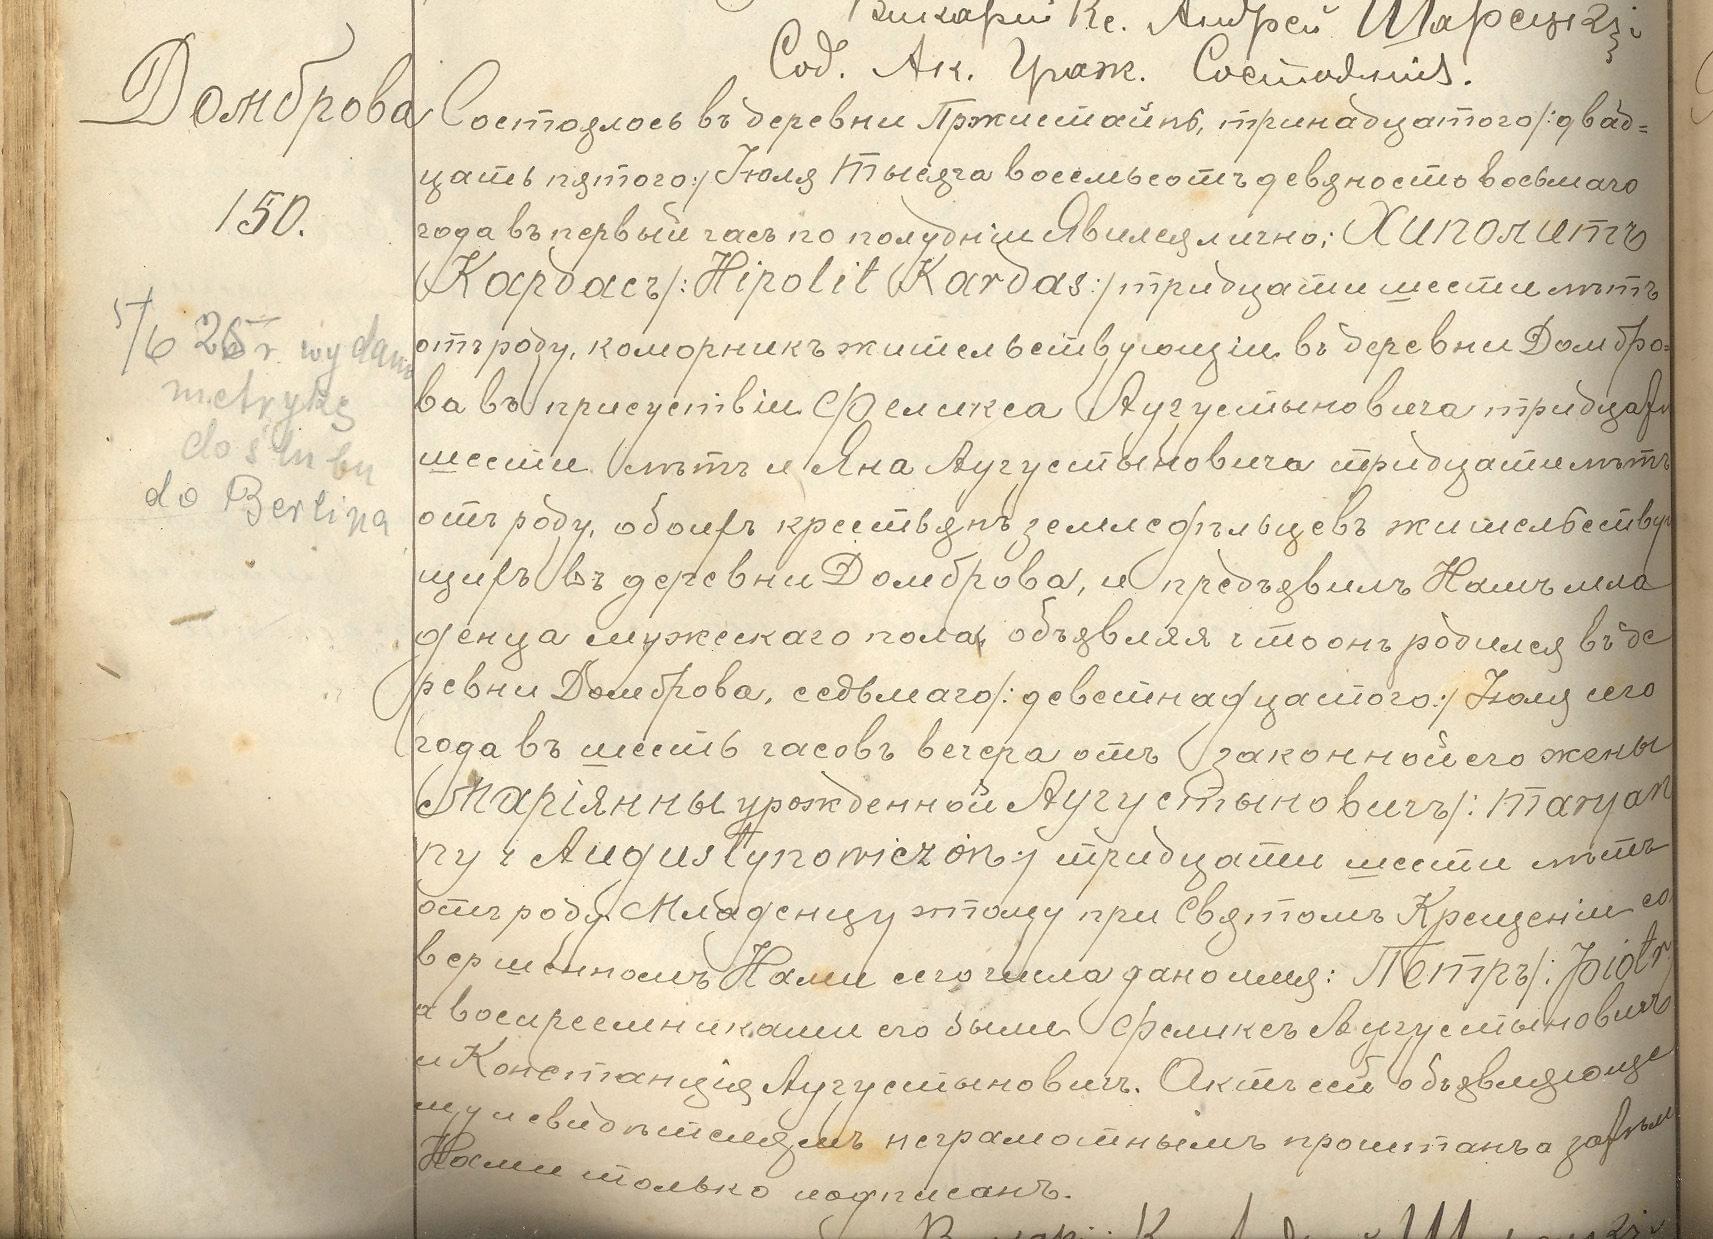 Викарій Кс. Андрей
Сод. Ак. Граж. Состоянія.
Домброва
150.
Состоялось въ деревни Пржистайнѣ, тринадцатого /: двад=
цать пятого :/ Іюля тысяча восемьсотъ девяносто восьмаго
года въ первый часъ по полудніи Явился лично; Хиполитъ
Кардасъ /: Hipolit Kardas :/ тридцати шести лѣтъ
отъ роду, коморникъ жительствующіи въ деревни Домбро=
ва въ присуствіи Феликса Аугустыновича тридцати
шести лѣтъ и Яна Аугустыновича тридцати лѣтъ
отъ роду, обоихъ крестьянъ земледѣльцевъ жительству
щихъ въ деревни Домброва, и предъявилъ Намъ мла
денца мужескаго пола, объявляя что онъ родился въ де
ревни Домброва, седьмаго /: деветнадцатого :/ Іюля сего
года въ шесть часовъ вечера отъ законной его жены
Маріянны урожденной Аугустыновичъ /: Maryan
ny z Augustynowiczów :/ тридцати шести лѣтъ
отъ роду. Младенцу этому при Святомъ Крещеніи со
вершенномъ Нами сего числа дано имя: Петръ /: Piotr
а воспреемниками его были Феликсъ Аугустыновичъ
и Констанція Аугустыновичъ. Актъ сей объявляюще
му и свидѣтелямъ неграмотнымъ прочитанъ а затѣмъ
Нами только подписанъ.
5/6 26 r. wydano
metrykę
do ślubu
do Berlina